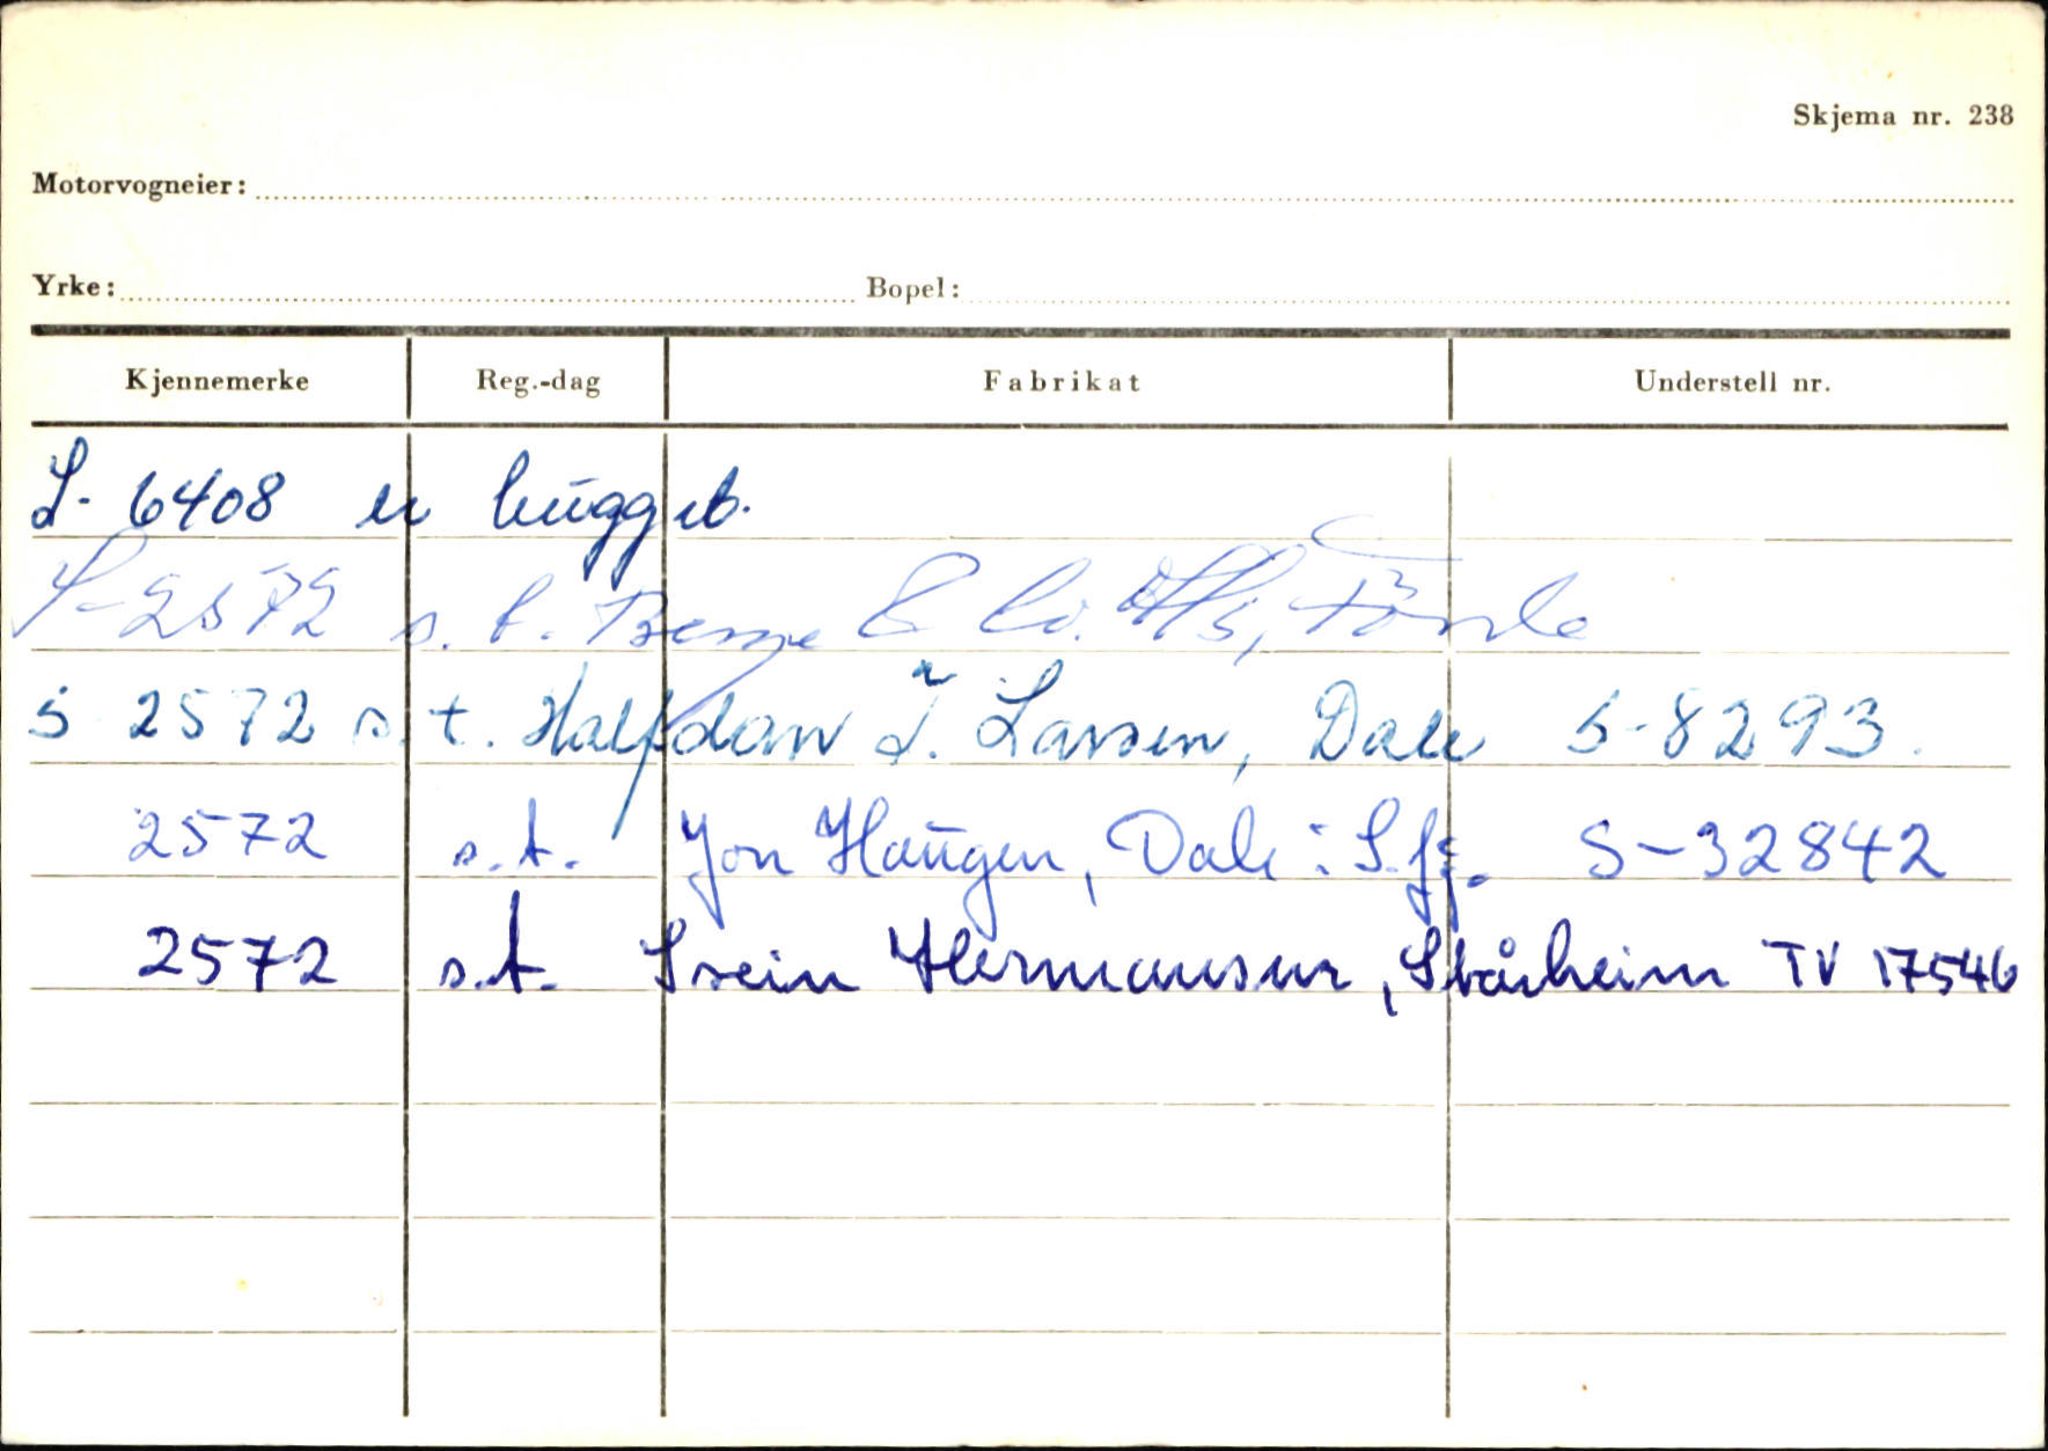 Skjema nr. 238
Motorvogneier:
Yrke: Bopel:
Kjennemerke Reg.-dag Fabrikat Understell nr.
S- 6408 er hugget.
S-2572 s.t. & Co. A/S, Förde
S 2572 s.t. Halfdan I. Larsen, Dale S-8293.
2572 s.t. Jon Haugen, Dale i S.fj. S-32842
2572 s.t. Svein Hermansen, Stårheim TV 17546